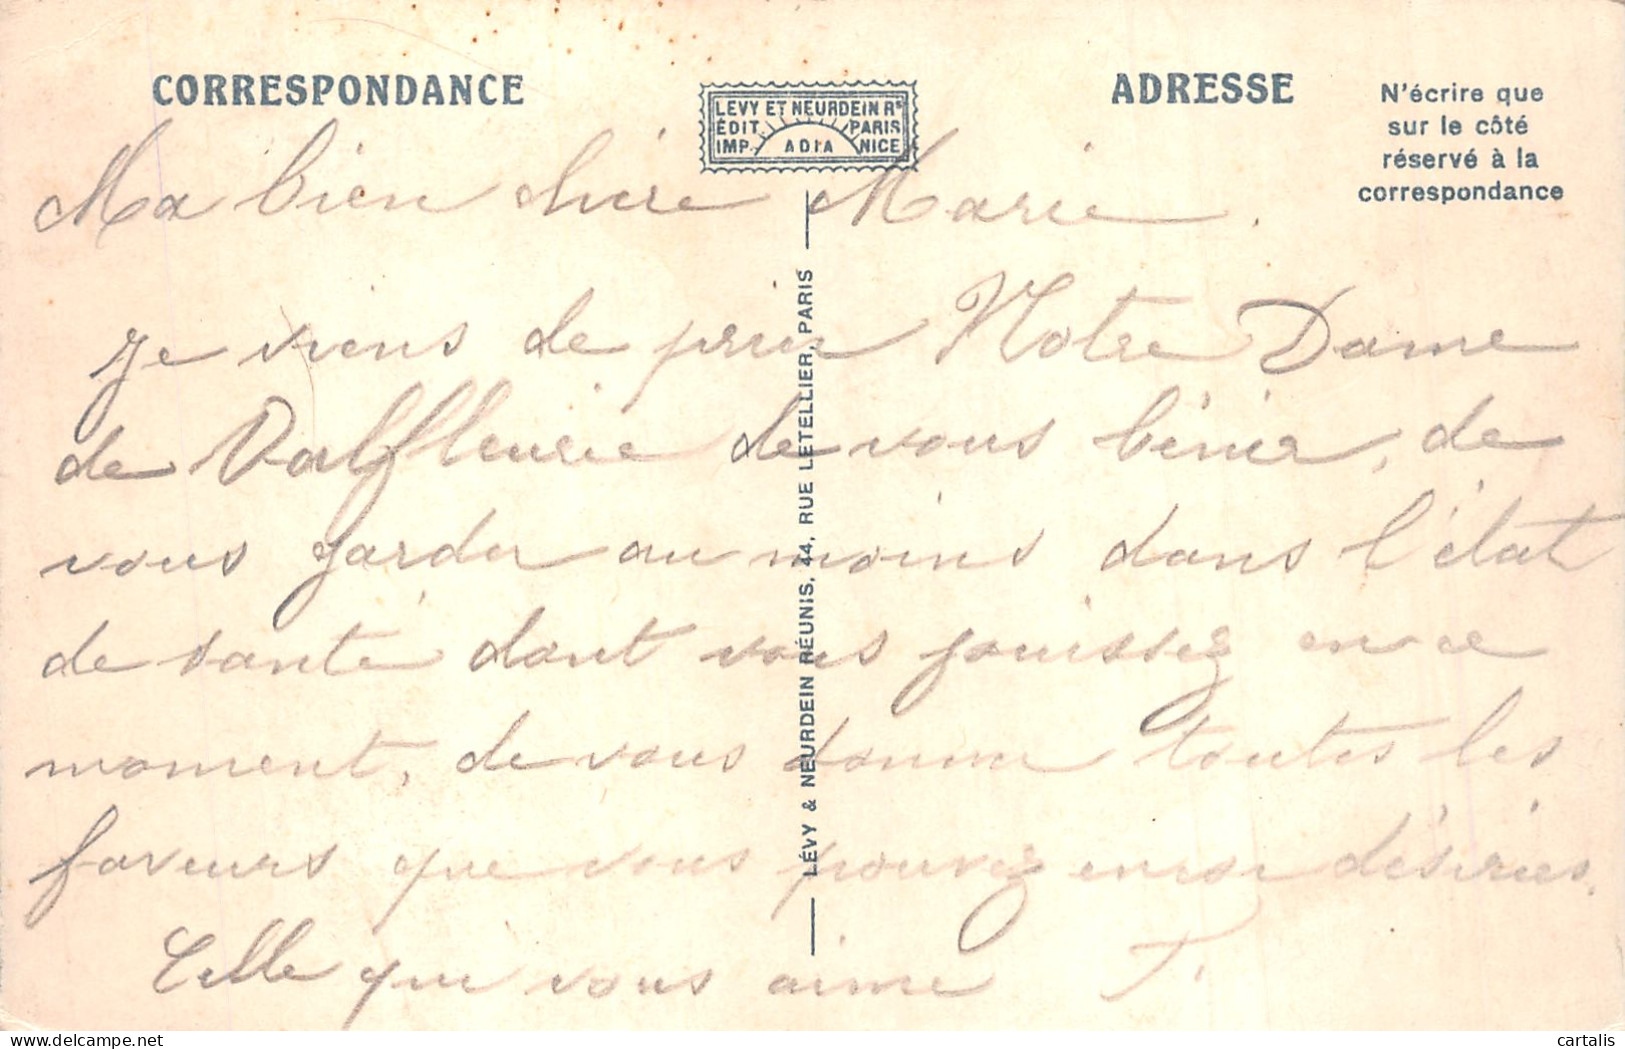 CORRESPONDANCE
ADRESSE
N'écrire que
sur le côté
réservé à la
correspondance
LEVY ET NEURDEIN Rs
ÉDIT. PARIS
IMP. ADIA NICE
LÉVY & NEURDEIN RÉUNIS, 44, RUE LETELLIER, PARIS
Ma bien chère Marie.
Je viens de prier Notre Dame
de Valfleurie de vous bénir, de
vous garder au moins dans l'état
de santé dont vous jouissez en ce
moment, de vous donner toutes les
faveurs que vous pouvez désirées.
Celle qui vous aime T.
cartalis
delcampe.net